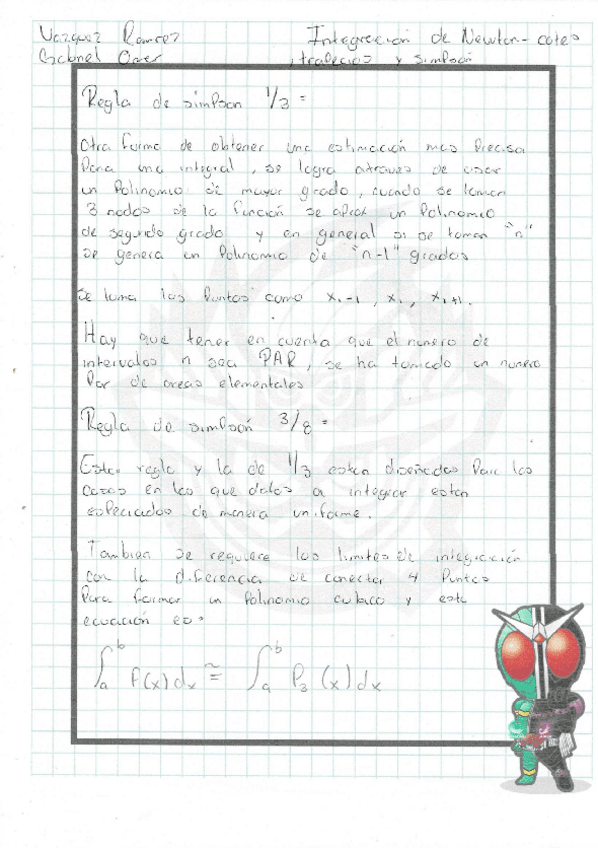 Vazquez Ramirez
Integración de Newton-cotes
Gabriel Omer
, trapecios y simpson
Regla de simpson 1/3 =
Otra forma de obtener una estimación mas Precisa
Para una integral, se logra atraves de usar
un Polinomio de mayor grado, cuando se toman
3 nodos de la función se aprox un Polinomio
de segundo grado y en general si se toman "n"
se genera un Polinomio de "n-1" grados
se toma los Puntos como xi-1, xi, xi+1.
Hay que tener en cuenta que el numero de
intervalos n sea PAR, se ha tomado un numero
Par de areas elementales
Regla de simpson 3/8 =
Esta regla y la de 1/3 estan diseñadas Para los
casos en los que datos a integrar estan
espaciados de manera uniforme.
Tambien se requiere los limites de integración
con la diferencia de conectar 4 Puntos
Para formar un Polinomio cubico y esta
ecuación es:
∫ₐᵇ f(x)dx ≅ ∫ₐᵇ P₃(x)dx